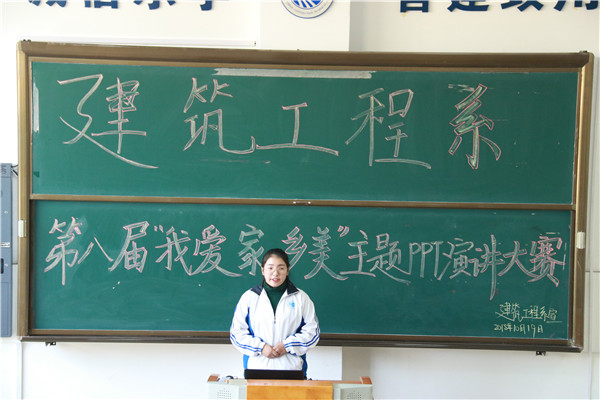 建筑工程系
第八届"我爱家乡美"主题PPT演讲大赛
建筑工程系宣
2018年10月17日